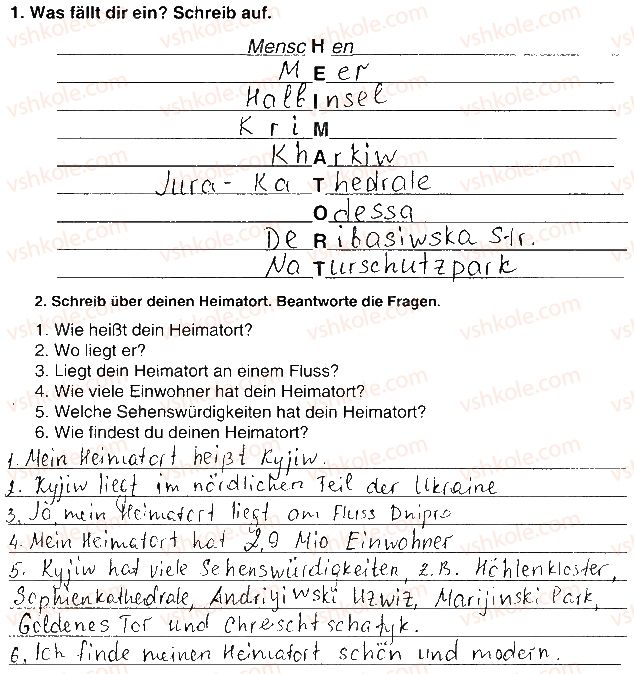 1. Was fällt dir ein? Schreib auf.
Mensc H en
M E er
Halb I nsel
K r i M
Kh A rkiw
Jura - Ka T hedrale
O dessa
De R ibasiwska Str.
Na T urschutzpark
2. Schreib über deinen Heimatort. Beantworte die Fragen.
1. Wie heißt dein Heimatort?
2. Wo liegt er?
3. Liegt dein Heimatort an einem Fluss?
4. Wie viele Einwohner hat dein Heimatort?
5. Welche Sehenswürdigkeiten hat dein Heimatort?
6. Wie findest du deinen Heimatort?
1. Mein Heimatort heißt Kyjiw.
2. Kyjiw liegt im nördlichen Teil der Ukraine
3. Ja, mein Heimatort liegt am Fluss Dnipro
4. Mein Heimatort hat 2,9 Mio Einwohner
5. Kyjiw hat viele Sehenswürdigkeiten, z.B. Höhlenkloster,
Sophienkathedrale, Andriyiwski Uzwiz, Marijinski Park,
Goldenes Tor und Chreschtschatyk.
6. Ich finde meinen Heimatort schön und modern.
vshkole.com